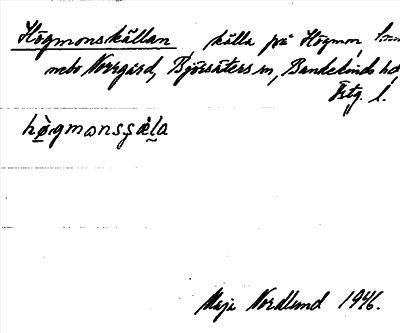 Högmonskällan, källa på Högmon,
mebo Norrgård, Björsäters sn, Bankekinds hd
Östg. l.
högmonsçäla
Maja Nordlund 1946.